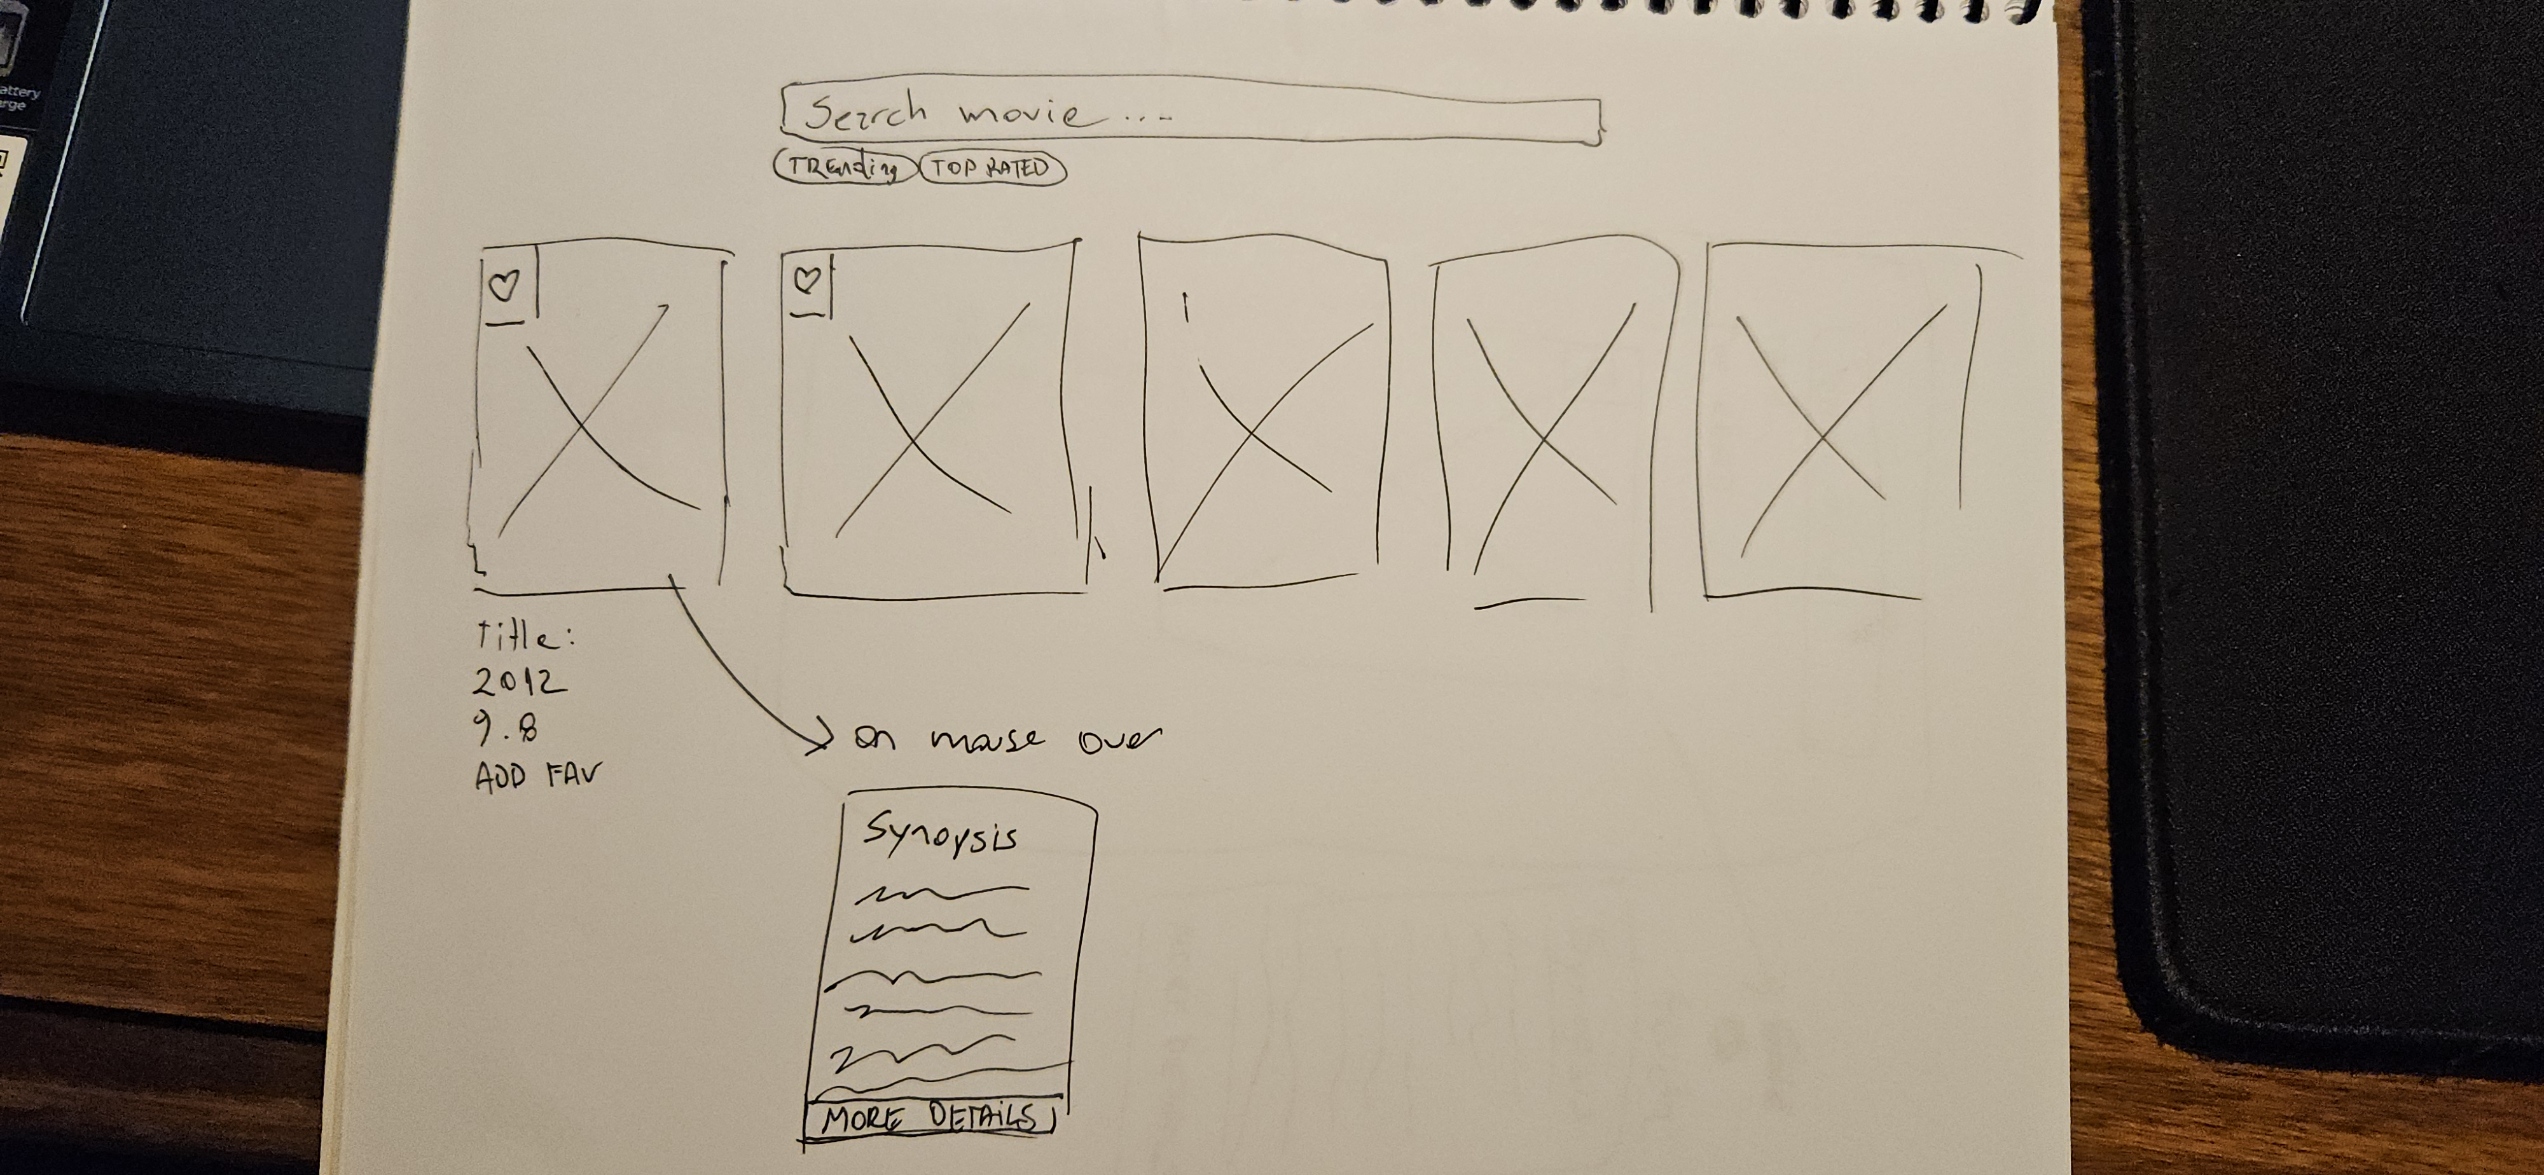 Search movie....
TRENdiNg TOP RATED
title:
2012
9.8
ADD FAV
on mouse over
Synoysis
MORE DETAILS